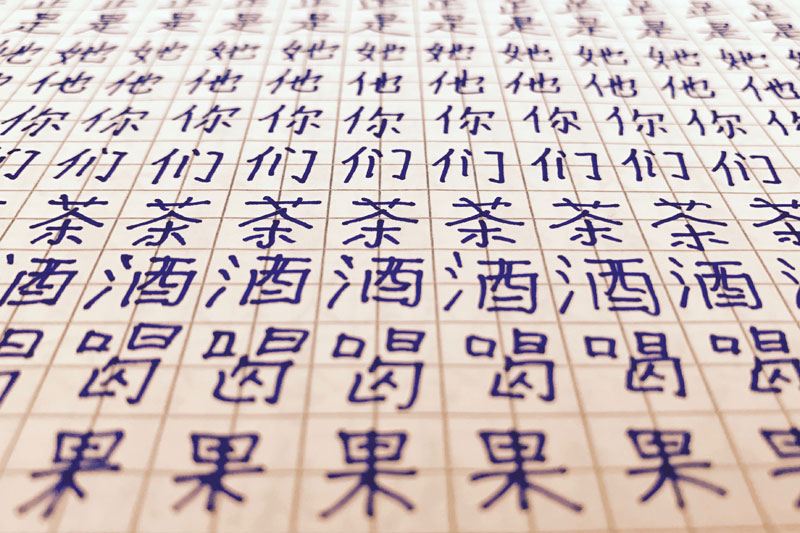 是是是是是是是是是是是是
她她她她她她她她她她
他他他他他他他他他他
你你你你你你你你你
们们们们们们们们
茶茶茶茶茶茶茶
酒酒酒酒酒酒酒
喝喝喝喝喝喝
果果果果果